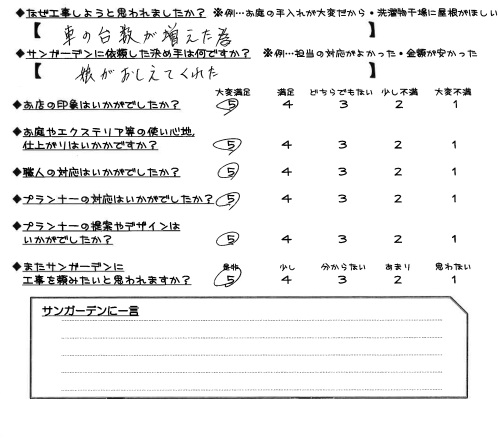 ◆なぜ工事しようと思われましたか？ ※例…お庭の手入れが大変だから・洗濯物干場に屋根がほしい
【 車の台数が増えた為 】
◆サンガーデンに依頼した決め手は何ですか？ ※例…担当の対応がよかった・金額が安かった
【 娘がおしえてくれた 】
大変満足 満足 どちらでもない 少し不満 大変不満
◆お店の印象はいかがでしたか？ 5 4 3 2 1
◆お庭やエクステリア等の使い心地,
仕上がりはいかかですか？ 5 4 3 2 1
◆職人の対応はいかがでしたか？ 5 4 3 2 1
◆プランナーの対応はいかがでしたか？ 5 4 3 2 1
◆プランナーの提案やデザインは
いかがでしたか？ 5 4 3 2 1
◆またサンガーデンに 是非 少し 分からない あまり 思わない
工事を頼みたいと思われますか？ 5 4 3 2 1
サンガーデンに一言